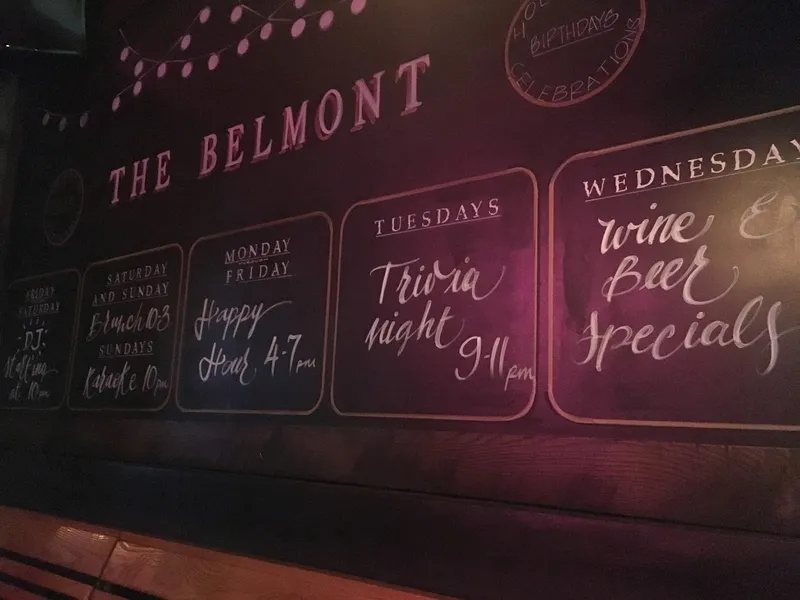 BIRTHDAYS
CELEBRATIONS
THE BELMONT
FRIDAY
SATURDAY
DJ
Starting
at 10pm
SATURDAY
AND SUNDAY
Brunch 10-3
SUNDAYS
Karaoke 10pm
MONDAY
FRIDAY
Happy
Hour 4-7pm
TUESDAYS
Trivia
night
9-11pm
WEDNESDAY
wine &
Beer
specials